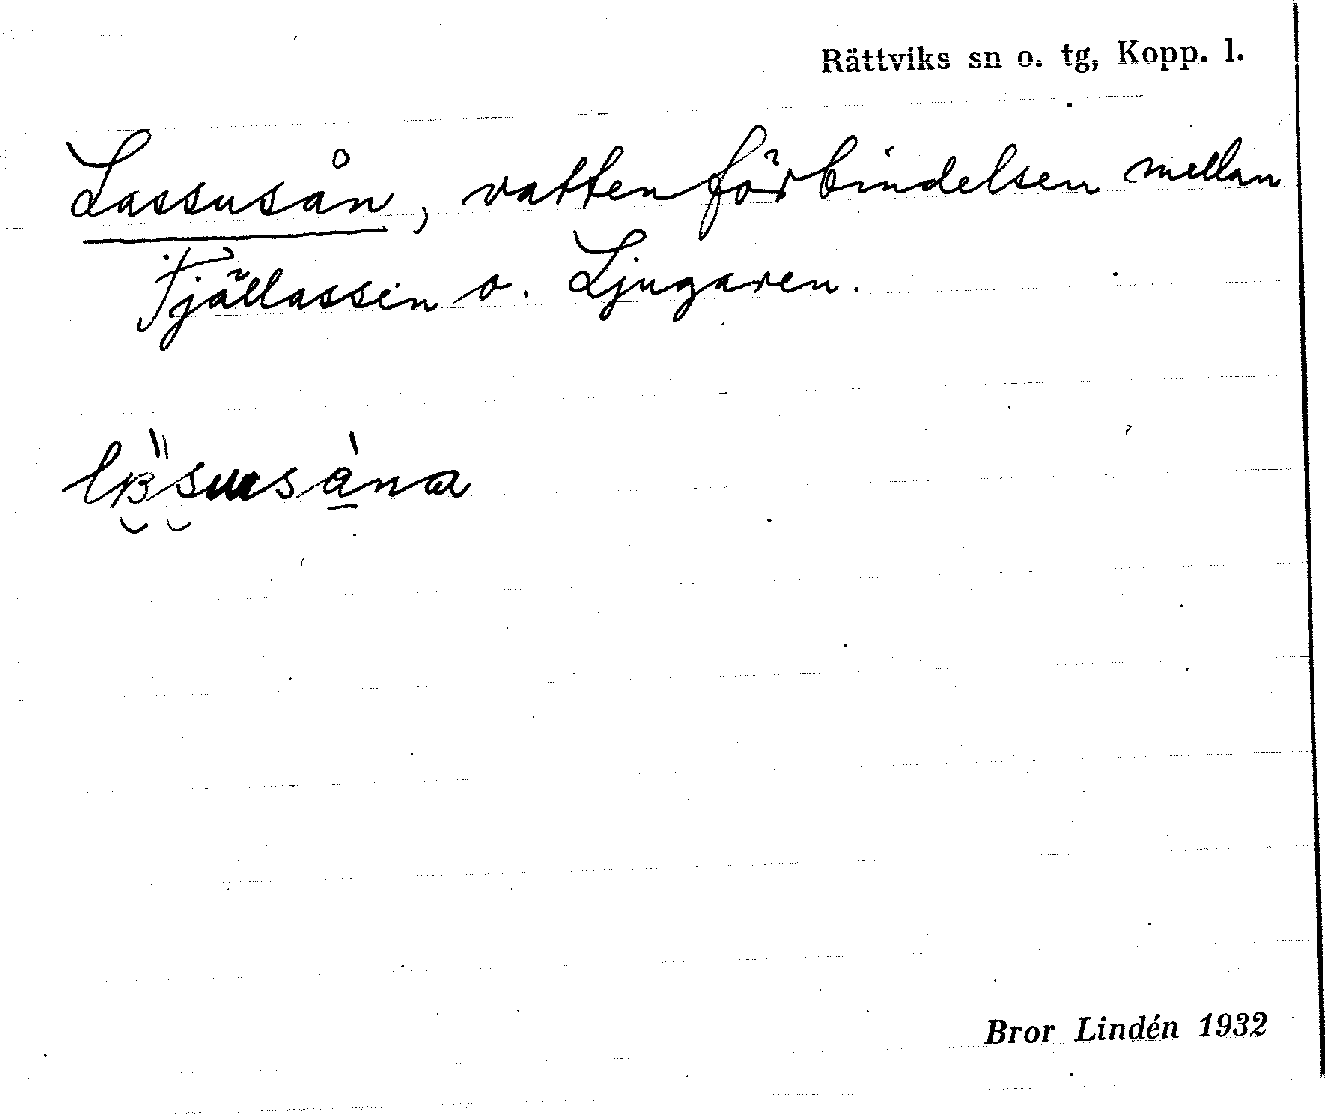 Rättviks sn o. tg, Kopp. l.
Lassusån, vattenförbindelsen mellan
Fjällassen o. Ljugaren.
Bror Lindén 1932